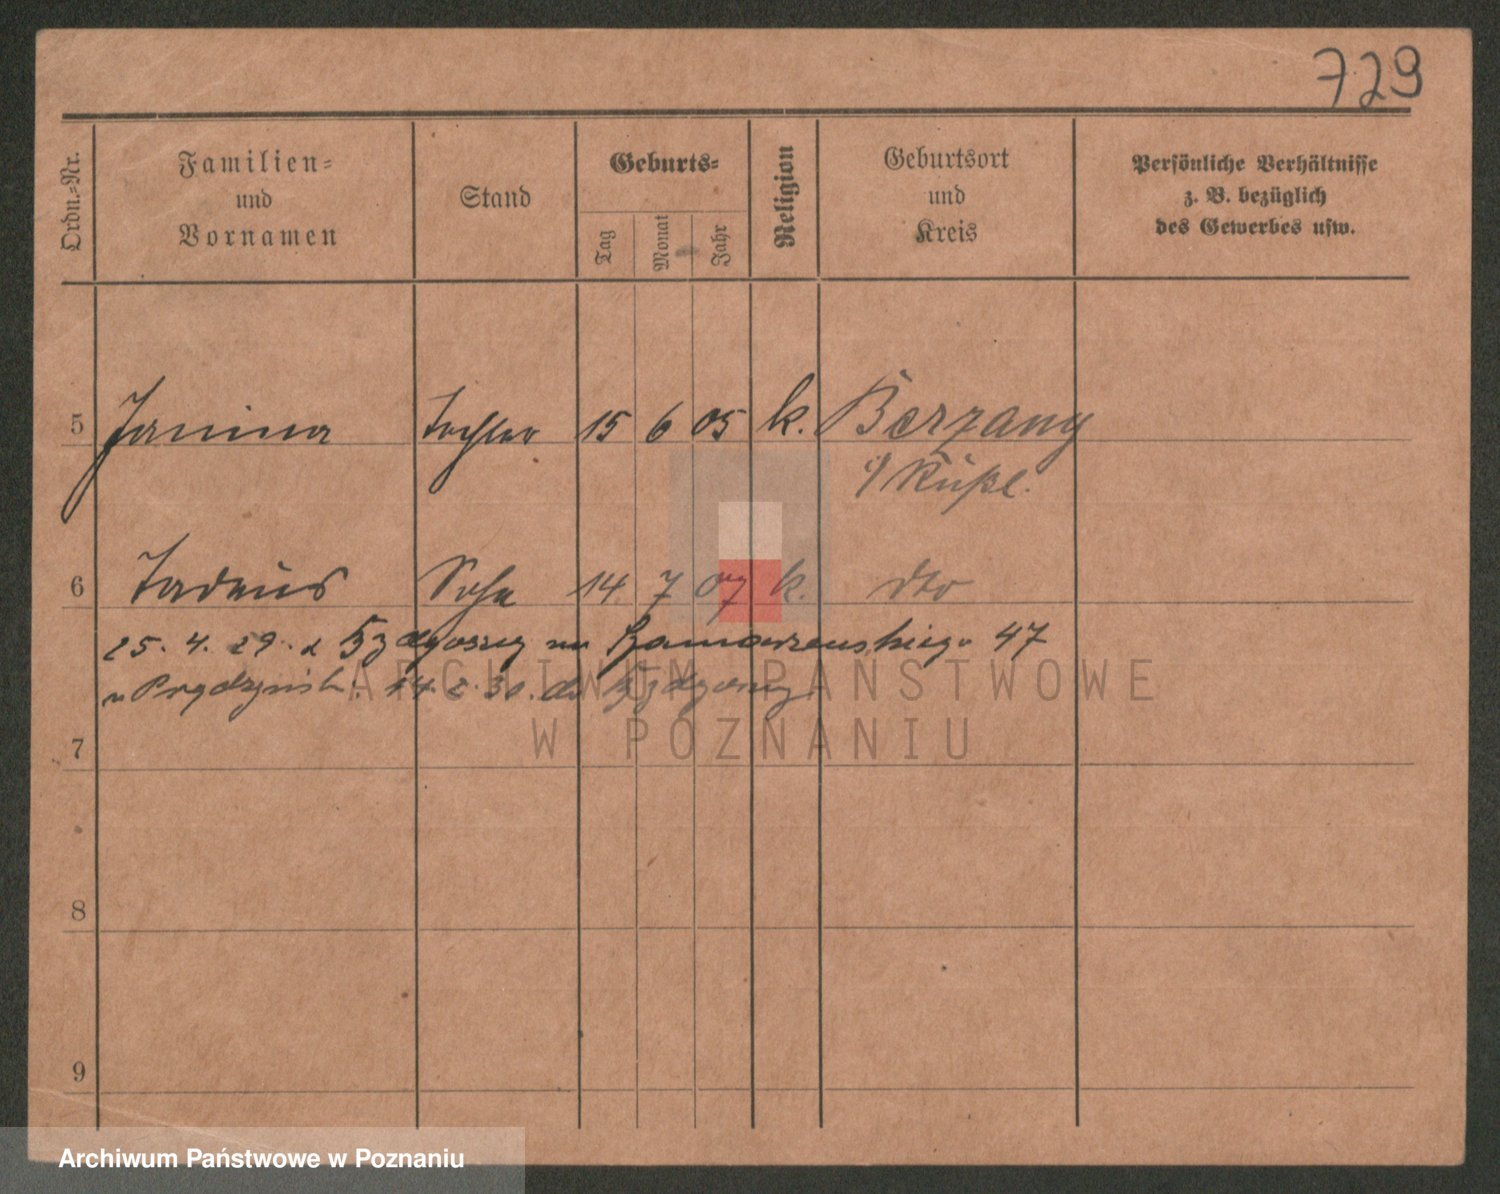 729
Ordn.-Nr.
Familien-
und
Vornamen
Stand
Geburts-
Tag
Monat
Jahr
Religion
Geburtsort
und
Kreis
Persönliche Verhältnisse
z. B. bezüglich
des Gewerbes usw.
5 Janina Tochter 15 6 05 k. Berzany
6 Tadeus Sohn 14 7 07 k. dto
25. 4. 29. z Bydgoszcz 47
30. do Bydgoszcz
7
8
9
ARCHIWUM PAŃSTWOWE
W POZNANIU
Archiwum Państwowe w Poznaniu